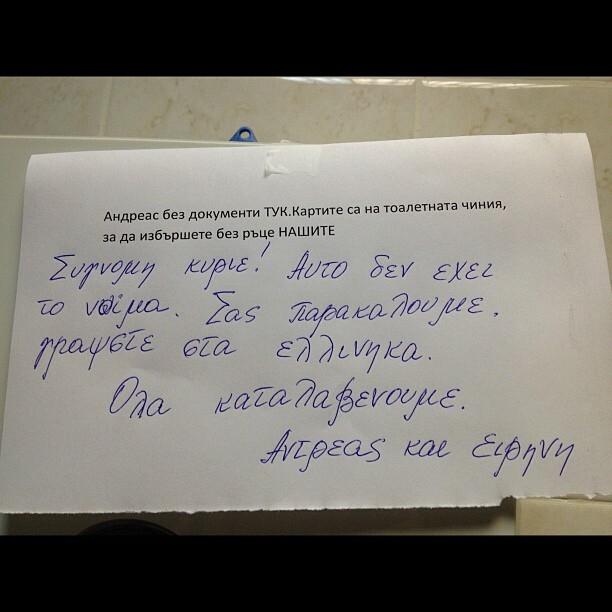 Андреас без документи ТУК.Картите са на тоалетната чиния,
за да избършете без ръце НАШИТЕ
Συγνομη κυριε! Αυτο δεν εχει
το νοιμα. Σας παρακαλουμε.
γραψετε στα ελλινηκα.
Ολα καταλαβενουμε.
Αντρεας και Ειρηνη